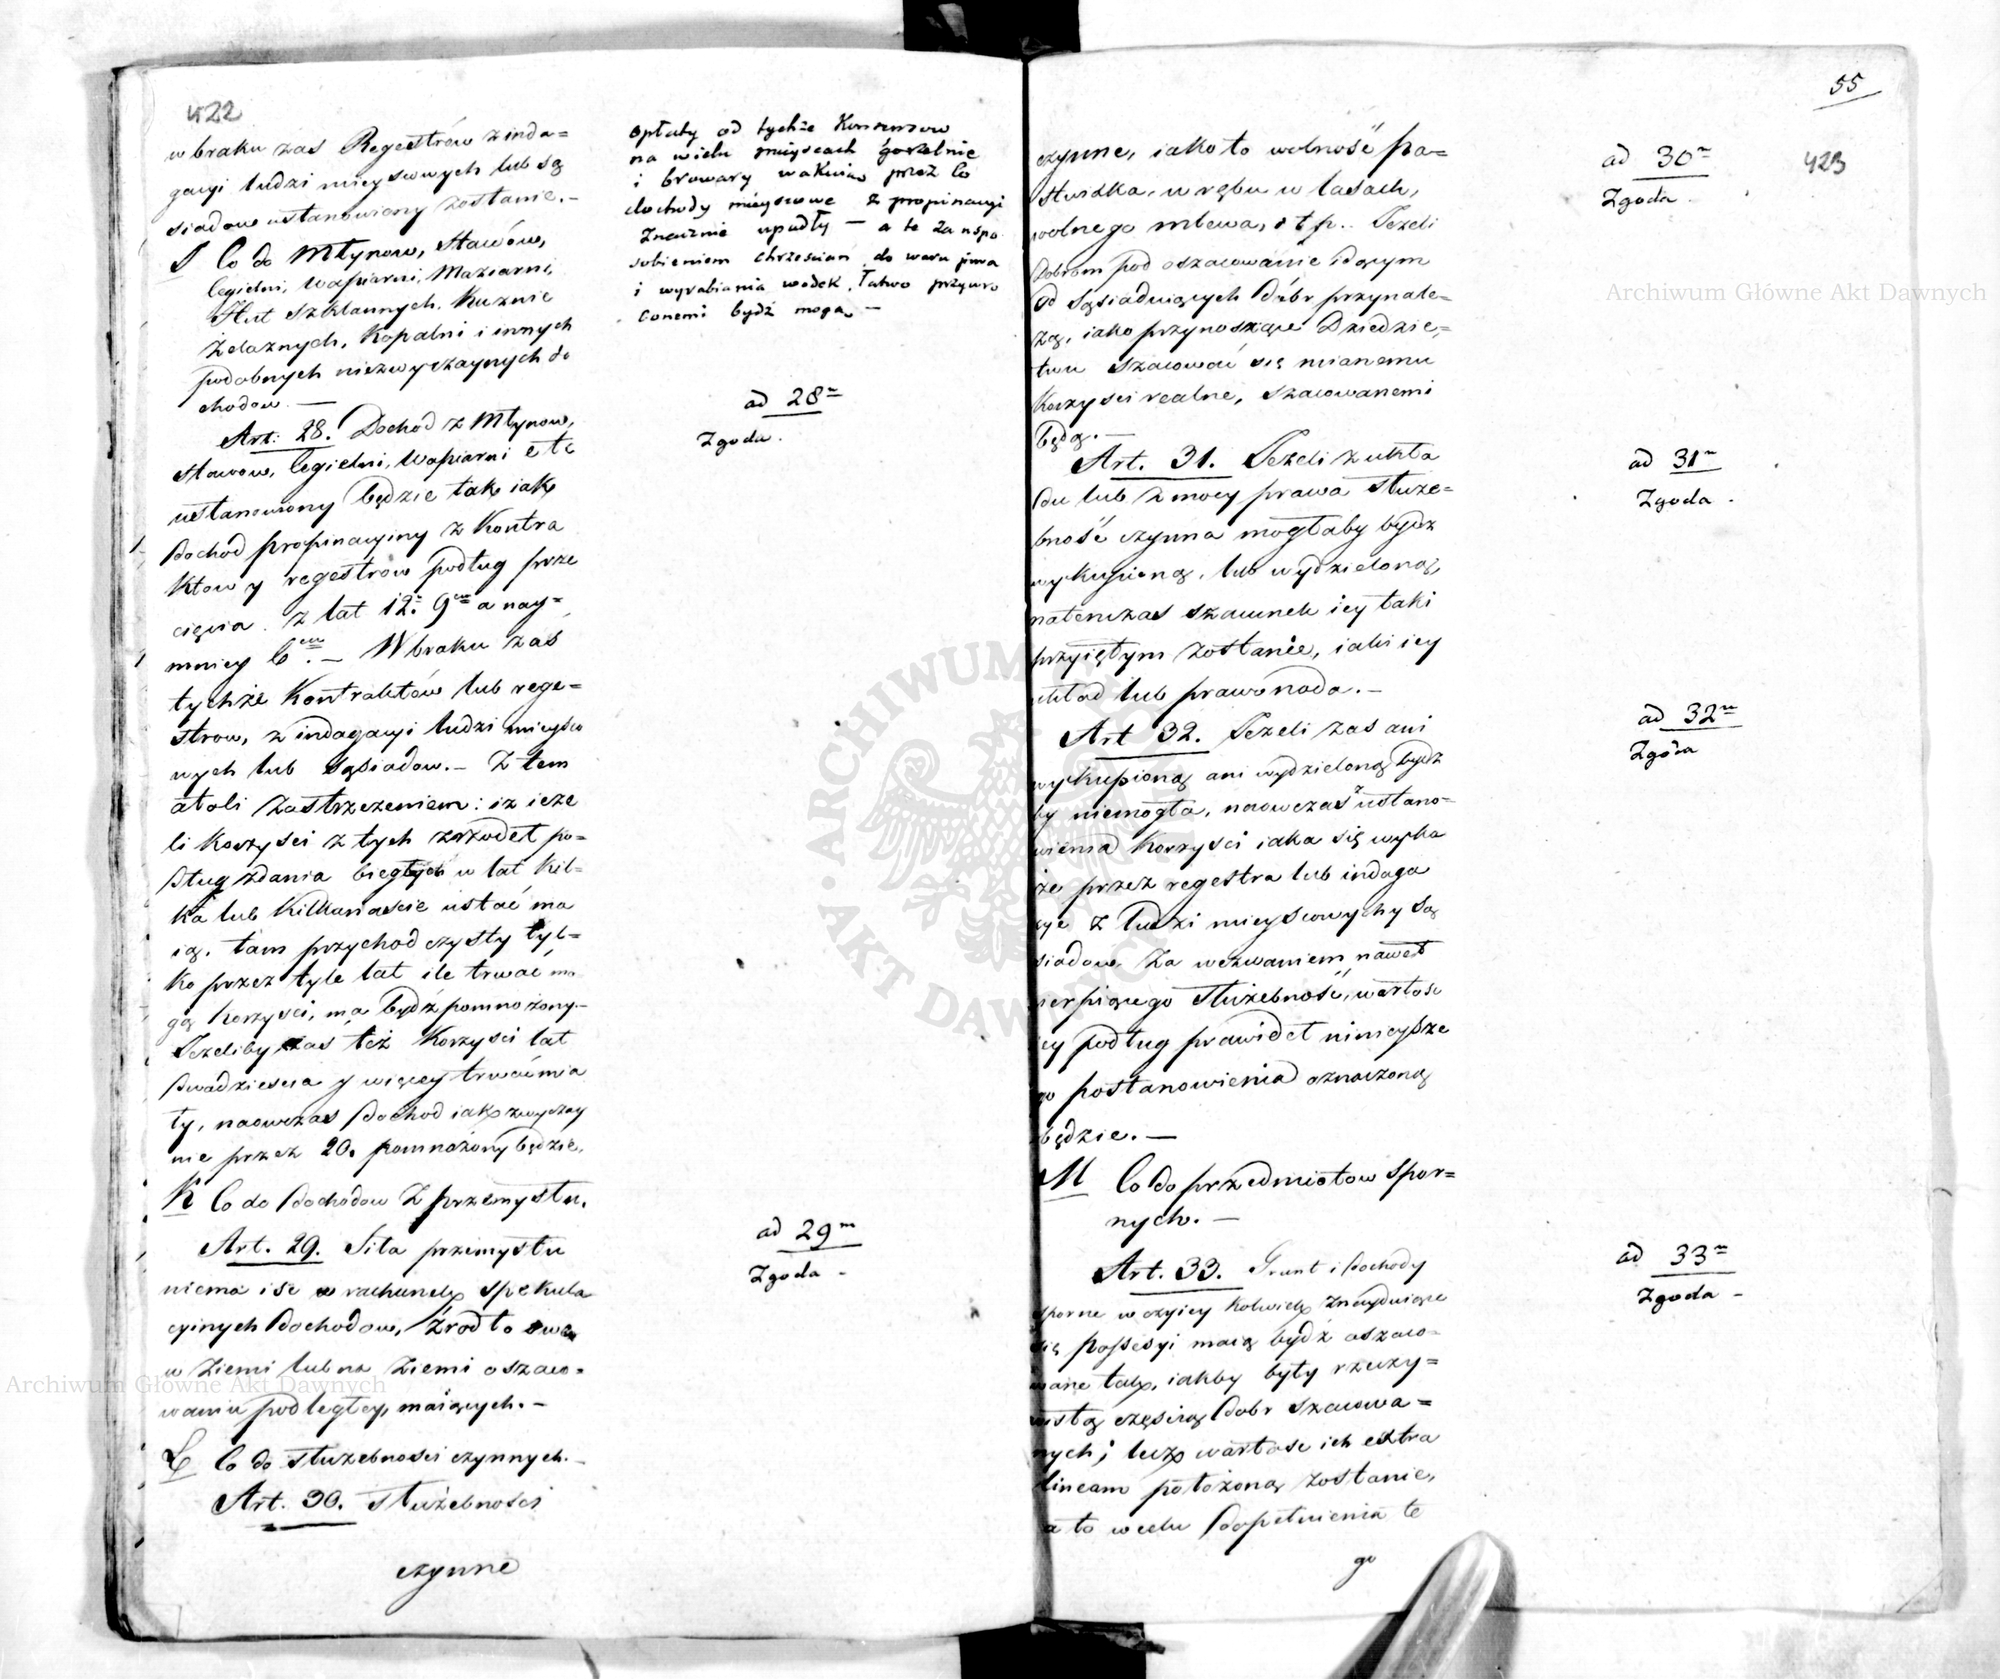 422
w braku zas Regestrów z inda=
gacyi ludzi mieyscowych lub są
siadow ustanowiony zostanie. -
J Co do Młynow, Stawów,
Cegielni, Wapiarni, Maziarni,
Hut szklannych, Kuznic
Żelaznych, Kopalni i innych
podobnych niezwyczaynych do
chodow. —
Art: 28. Dochód z Młynow,
stawow, Cegielni, Wapiarni etc
ustanowiony będzie tak iak
dochod propinacyiny z Kontra
któw y regestrow podług prze
cięcia z lat 12. 9ciu a nay=
mniey 6ciu. — W braku zaś
tychże Kontraktów lub rege=
strow, z indagacyi ludzi mieysco
wych lub sąsiadow. — Z tem
atoli zastrzeżeniem: iz ieże
li korzysci z tych zrzodeł po=
dług zdania biegłych w lat kil=
ka lub kilkanascie ustać ma
ią, tam przychod czysty tyl=
ko przez tyle lat ile trwać mo
gą korzysci, ma bydź pomnożony. -
Jezeliby zaś też korzysci lat
dwadziescia y więcey trwać mia
ły, naowczas dochod iak zwyczay
nie przez 20. pomnożony będzie.
K Co do dochodow z przemysłu.
Art. 29. Siła przemysłu
niema iść w rachunek spekula
cyinych dochodow, źrodło swe
w ziemi lub na ziemi oszaco=
waniu podległey, maiących. -
L Co do służebności czynnych. -
Art. 30. Służebności
czynne
opłaty od tychże Konsensow
na wielu mieyscach gorzelnie
i browary wakuią przez co
dochody mieyscowe z propinacyi
znacznie upadły — a te za uspo
sobieniem chrześcian do waru piwa
i wyrabiania wodek, łatwo przywro
conemi bydź mogą —
ad 28m
Zgoda.
ad 29m
Zgoda -
55
423
czynne, iako to wolność pa=
stwiska, wrębu w lasach,
wolnego mlewa, i t p. Jeżeli
dobrom pod oszacowanie idącym
od sąsiaduiących dóbr przynale=
żą, iako przynoszące Dziedzic=
twu szacować się mianemu
korzysci realne, szacowanemi
będą. —
Art. 31. Jeżeli z ukła
du lub z mocy prawa służe=
bność czynna mogłaby bydz
wykupioną, lub wydzieloną,
natenczas szacunek iey taki
przyiętym zostanie, iaki iey
układ lub prawo nada. —
Art 32. Jeżeli zas ani
wykupioną ani wydzieloną bydz
by niemogła, naowczas z ustano=
wienia korzysci iaka się wyka
że przez regestra lub indaga
cye z ludzi mieyscowych y są
siadow za wezwaniem nawet
cierpiącego służebność, wartość
iey podług prawideł ninieysze
go postanowienia oznaczoną
będzie. —
M Co do przedmiotow spor=
nych. —
Art. 33. Grunt i dochody
sporne w czyiey kolwiek znayduiące
się possesyi maią bydź oszaco=
wane tak, iakby były rzeczy=
wistą częścią dobr szacowa=
nych; lecz wartość ich extra
lineam położoną zostanie,
a to w celu dopełnienia te
go
ad 30m
Zgoda
ad 31m
Zgoda.
ad 32m
Zgoda
ad 33m
Zgoda -
Archiwum Główne Akt Dawnych
Archiwum Główne Akt Dawnych